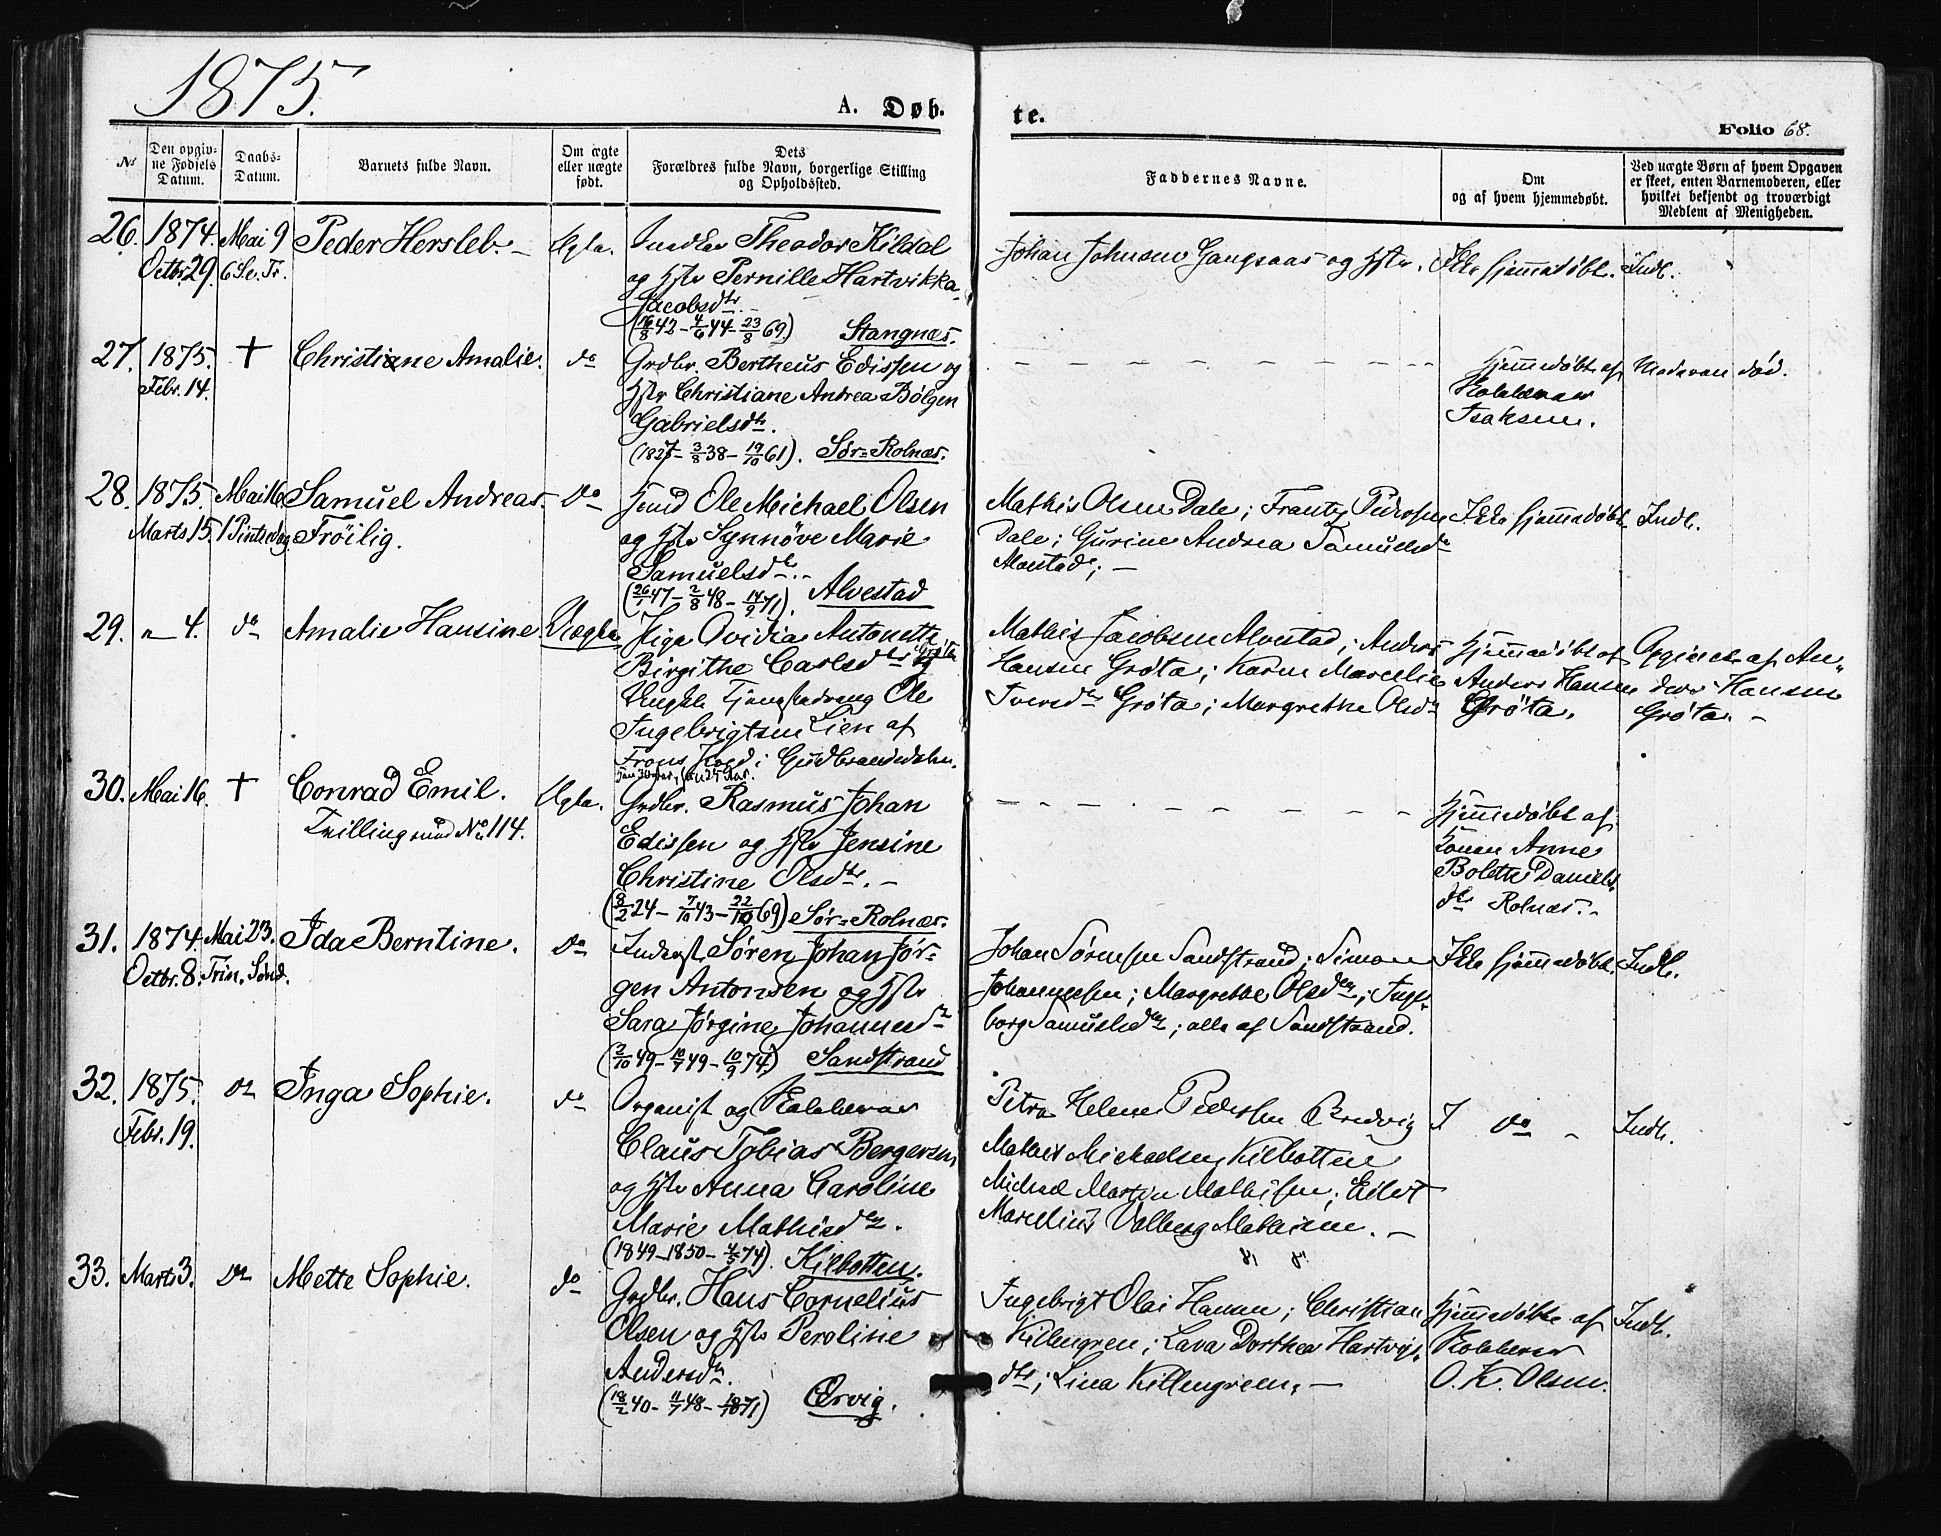 1875.
A. Døb-
te.
Folio 68.
№
Den opgiv-
ne Fødsels
Datum.
Daabs-
Datum.
Barnets fulde Navn.
Om ægte
eller uægte
født.
Dets
Forældres fulde Navn, borgerlige Stilling
og Opholdssted.
Faddernes Navne.
Om
og af hvem hjemmedøbt.
Ved uægte Børn af hvem Opgaven
er skeet, enten Barnemoderen, eller
hvilket bekjendt og troværdigt
Medlem af Menigheden.
26.
1874.
Octbr. 29.
Mai 9
6 Se. Tr.
Peder Hersleb. -
Ægte.
Theodor Kildal
og Hstr Pernille Hartvikka
Jacobsdtr. -
(16/8 42 - 4/6 44 - 23/8 69) Stangnæs.
Johan Johnsen Gangsaas og Hstr.
Ikke hjemmedøbt.
Indl.
27.
1875.
Febr. 14.
†
Christiane Amalie.
do
Grdbr. Bertheus Edissen og
Hstr Christiane Andrea Bølgen
Gabrielsdtr.
(1827 - 3/8 38 - 19/10 61). Sør-Rolnæs.
Hjemmedøbt af
Kokkevær
Isaksen.
død.
28.
1875.
Marts 15.
Mai 16
1 Pintsedag.
Samuel Andreas
Frøilig.
do
Hmd Ole Michael Olsen
og Hstr Synnøve Marie
Samuelsdtr. -
(26/1 47 - 2/8 48 - 14/9 71). Alvestad
Mathis Olsen Dale; Frantz Pedersen
Dale; Gurine Andrea Samuelsdtr
Alvestad; -
Ikke hjemmedøbt
Indl.
29.
" 4.
do
Amalie Hansine
Uægte
Pige Ovidia Antonette
Birgithe Carlsdtr Grøta og
Ungkl. Tjenestedreng Ole
Ingebrigtsen Lien af
Frons Prgd i Gudbrandsdalen.
Mathis Jacobsen Alvestad; Anders
Hansen Grøta; Karen Marcelie
Iversdtr Grøta; Margrethe Olsdtr
Hjemmedøbt af
Anders Hansen
Grøta.
Opgivet af An-
ders Hansen
Grøta. -
30.
Mai 16.
†
Conrad Emil.
Tvilling med No 114.
Ægte.
Grdbr. Rasmus Johan
Edissen og Hstr Jensine
Christine Olsdtr. -
(8/2 24 - 7/10 43 - 22/10 69) Sør-Rolnæs.
Hjemmedøbt af
Konen Anne
Bolette Daniels-
dtr Rolnæs. -
31.
1874.
Octbr. 8.
Mai 23.
Trin. Sønd.
Ida Berntine.
do
Inderst Søren Johan Jør-
gen Antonsen og Hstr
Sara Jørgine Johannesdtr
(3/10 49 - 10/7 49 - 10/9 74) Sandstrand
Johan Sørensen Sandstrand; Simon
Johannessen; Margrethe Olsdtr; Inge-
borg Samuelsdtr; alle af Sandstrand.
Ikke hjemmedøbt.
Indl.
32.
1875.
Febr. 19.
do
Inga Sophie.
do
Organist og Kokkevær
Claus Tobias Bergersen
og Hstr Anna Caroline
Marie Mathisdtr.
(1849 - 1850 - 4/5 74). Kilbotten.
Petra Helene Pedersen Bredvig
Mathis Mickaelsen Kilbotten
Michael Martin Mathisen; Eilert
Marelius Valberg Mathisen. -
I do -
Indl.
33.
Marts 3.
do
Mette Sophie.
do
Grdbr. Hans Cornelius
Olsen og Hstr Peroline
Andersdtr.
(18/2 40 - 11/7 48 - 10/10 71) Ørvig.
Ingebrigt Olai Hansen; Christian
Killengreen; Lava Dorthea Hartvigs-
dtr; Lina Killengreen. -
Hjemmedøbt af
Kokkevær
O. K. Olsen.
Indl.